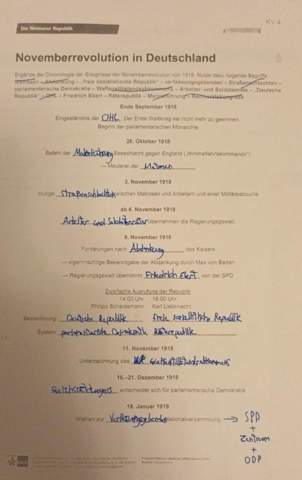 Die Weimarer Republik
KV 4
Novemberrevolution in Deutschland
Ergänze die Chronologie der Ereignisse der Novemberrevolution von 1918. Nutze dazu folgende Begriffe:
Matrosen – Abdankung – „freie sozialistische Republik“ – verfassungsgebenden – Straßenschlachten –
parlamentarische Demokratie – Waffenstillstandsabkommens – Arbeiter- und Soldatenräte – „Deutsche
Republik“ – OHL – Friedrich Ebert – Räterepublik –
Ende September 1918
Eingeständnis der OHL, der Erste Weltkrieg sei nicht mehr zu gewinnen.
Beginn der parlamentarischen Monarchie
28. Oktober 1918
Befehl der Seeschlacht gegen England („Himmelfahrtskommando“)
→ Meuterei der Matrosen
3. November 1918
blutige Straßenschlachten zwischen Matrosen und Arbeitern und einer Militärpatrouille
ab 4. November 1918
Arbeiter und Soldatenräte übernehmen die Regierungsgewalt
9. November 1918
Forderungen nach Abdankung des Kaisers
→ eigenmächtige Bekanntgabe der Abdankung durch Max von Baden
→ Regierungsgewalt übernimmt Friedrich Ebert, von der SPD
Zweifache Ausrufung der Republik
14:00 Uhr 16:00 Uhr
Philipp Scheidemann Karl Liebknecht
Bezeichnung Deutsche Republik freie sozialistische Republik
System parlamentarische Demokratie Räterepublik
11. November 1918
Unterzeichnung des
16.–21. Dezember 1918
entscheidet sich für parlamentarische Demokratie
19. Januar 1919
Wahlen zur Nationalversammlung → SPD
+
Zentrum
+
DDP